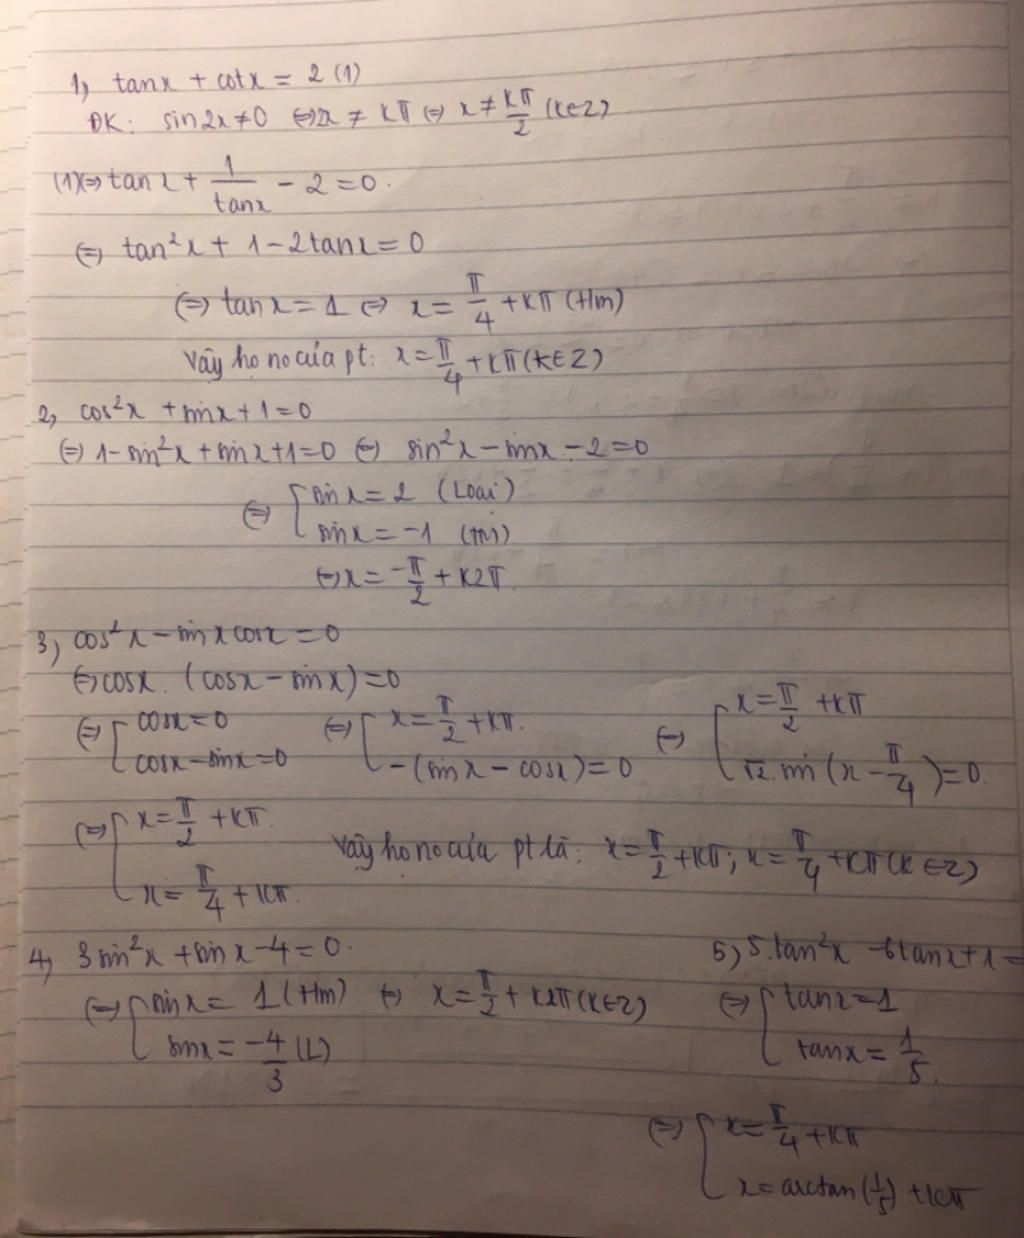 1, tanx + cotx = 2 (1)
ĐK: sin2x ≠ 0 ⇔ 2x ≠ kπ ⇔ x ≠ kπ/2 (k∈Z)
(1) ⇔ tanx + 1/tanx - 2 = 0.
⇔ tan²x + 1 - 2tanx = 0
⇔ tanx = 1 ⇔ x = π/4 + kπ (t/m)
Vậy họ no của pt: x = π/4 + kπ (k∈Z)
2, cos²x + sinx + 1 = 0
⇔ 1 - sin²x + sinx + 1 = 0 ⇔ sin²x - sinx - 2 = 0
⇔ [ sinx = 2 (Loại)
sinx = -1 (tm)
⇔ x = -π/2 + k2π.
3, cos²x - sinxcosx = 0
⇔ cosx. (cosx - sinx) = 0
⇔ [ cosx = 0 ⇔ [ x = π/2 + kπ. ⇔ [ x = π/2 + kπ
cosx - sinx = 0 -(sinx - cosx) = 0 √2. sin(x - π/4) = 0.
⇔ [ x = π/2 + kπ. Vậy họ no của pt là: x = π/2 + kπ; x = π/4 + kπ (k∈Z)
x = π/4 + kπ.
4, 3sin²x + sinx - 4 = 0. 5, 5.tan²x - 6tanx + 1 =
⇔ [ sinx = 1 (t/m) ⇔ x = π/2 + k2π (k∈Z) ⇔ [ tanx = 1
sinx = -4/3 (L) tanx = 1/5.
⇔ [ x = π/4 + kπ
x = arctan(1/5) + kπ